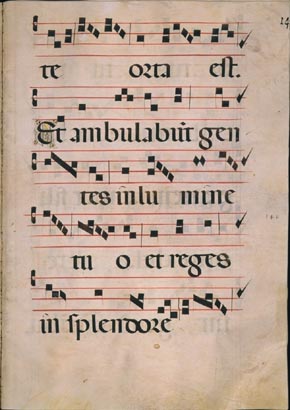 te orta est.
Et ambulabūt gen
tes in lu mine
tu o et reges
in splendore